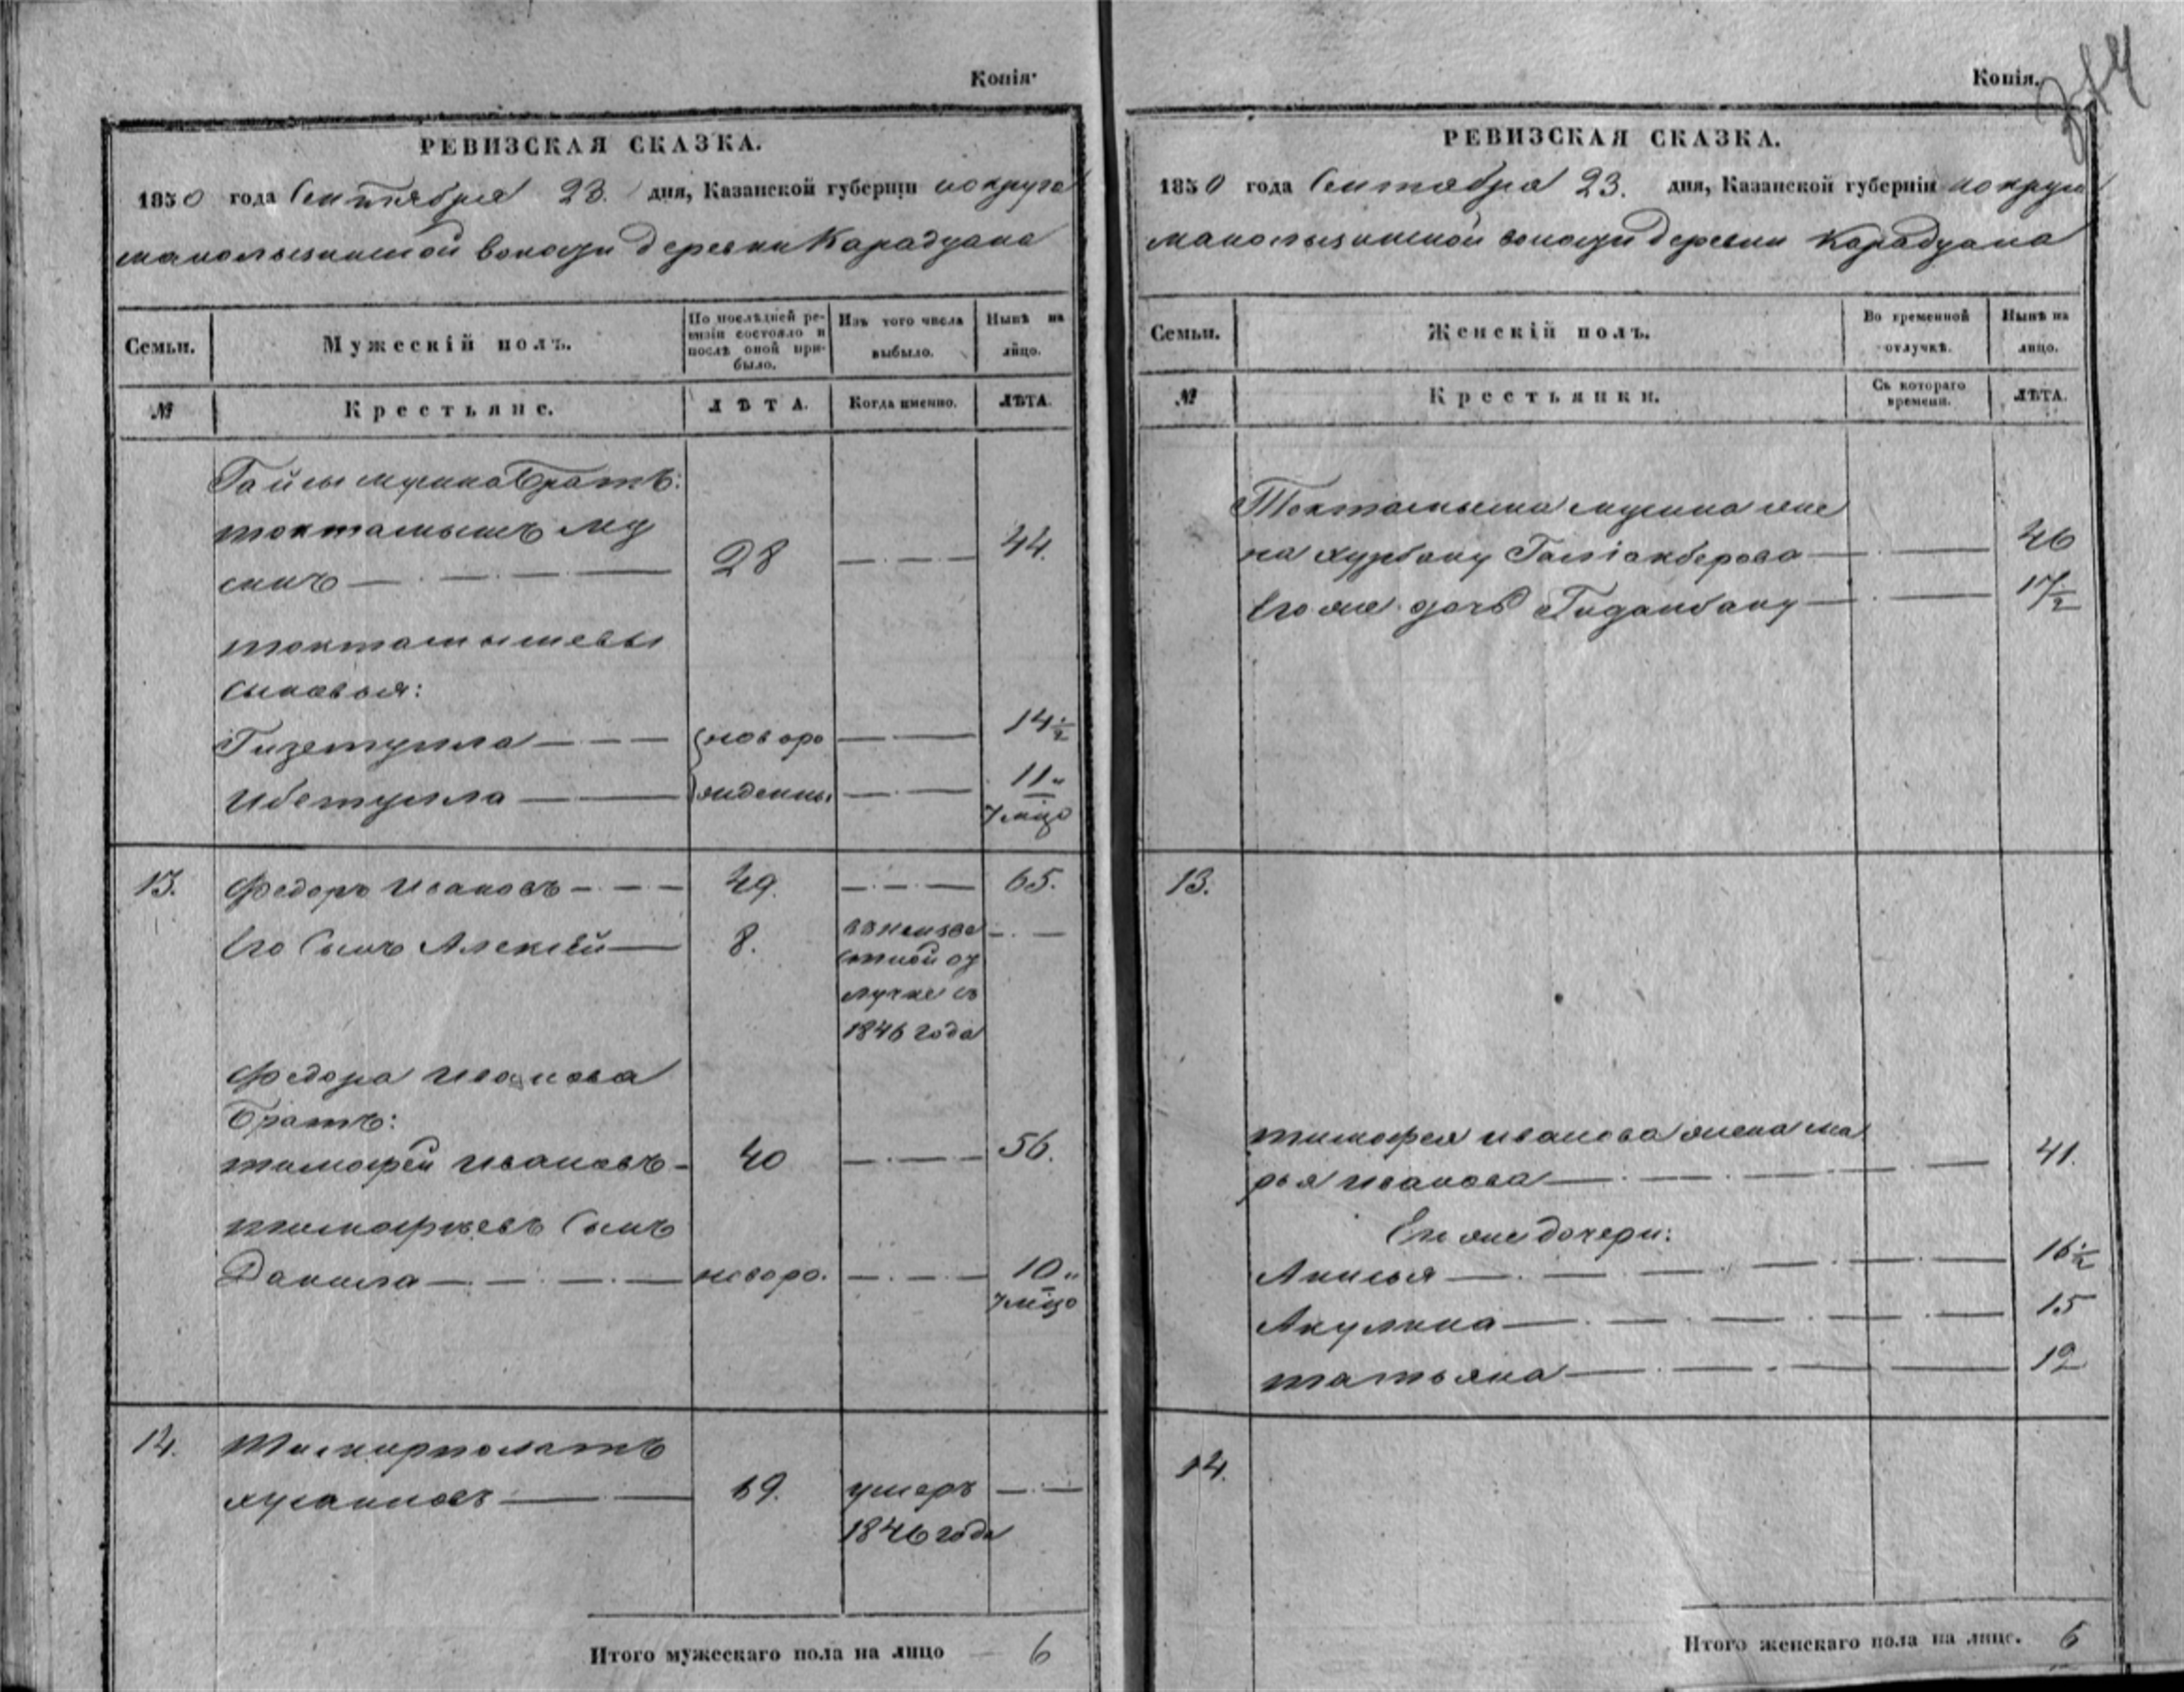 Копія.
РЕВИЗСКАЯ СКАЗКА.
1850 года Сентября 23. дня, Казанской губерніи
волости деревни Карадуана
Семьи.
Мужескій полъ.
По послѣдней ре-
визіи состояло и
послѣ оной при-
было.
Изъ того числа
выбыло.
Нынѣ на
лицо.
№
Крестьяне.
ЛѢТА.
Когда именно.
ЛѢТА.
Мусина братъ:
токтамышъ му
синъ 28 44.
токтамышевы
сыновья:
Гизетулла новоро 14 ½
Ибетулла жденны 11 „
13. Федоръ Ивановъ 49. 65.
Его сынъ Алексѣй 8. въ неизве
стной от
лучке съ
1846 года
Федора Иванова
братъ:
тимофей Ивановъ 40 56.
тимофеевъ сынъ
Данила новоро. 10 „
14. 69. умеръ
1846 года
Итого мужескаго пола на лицо 6
Копія.
РЕВИЗСКАЯ СКАЗКА.
1850 года Сентября 23. дня, Казанской губерніи
волости деревни Карадуана
Семьи.
Женскій полъ.
Во временной
отлучкѣ.
Нынѣ на
лицо.
№
Крестьянки.
Съ котораго
времени.
ЛѢТА.
Токтамыша мусина же
на 46
Его же дочь 17 ½
13.
тимофея иванова жена ма
рья иванова 41.
Его же дочери:
Анисья 16 ½
Акулина 15
татьяна 12
14.
Итого женскаго пола на лицо. 6